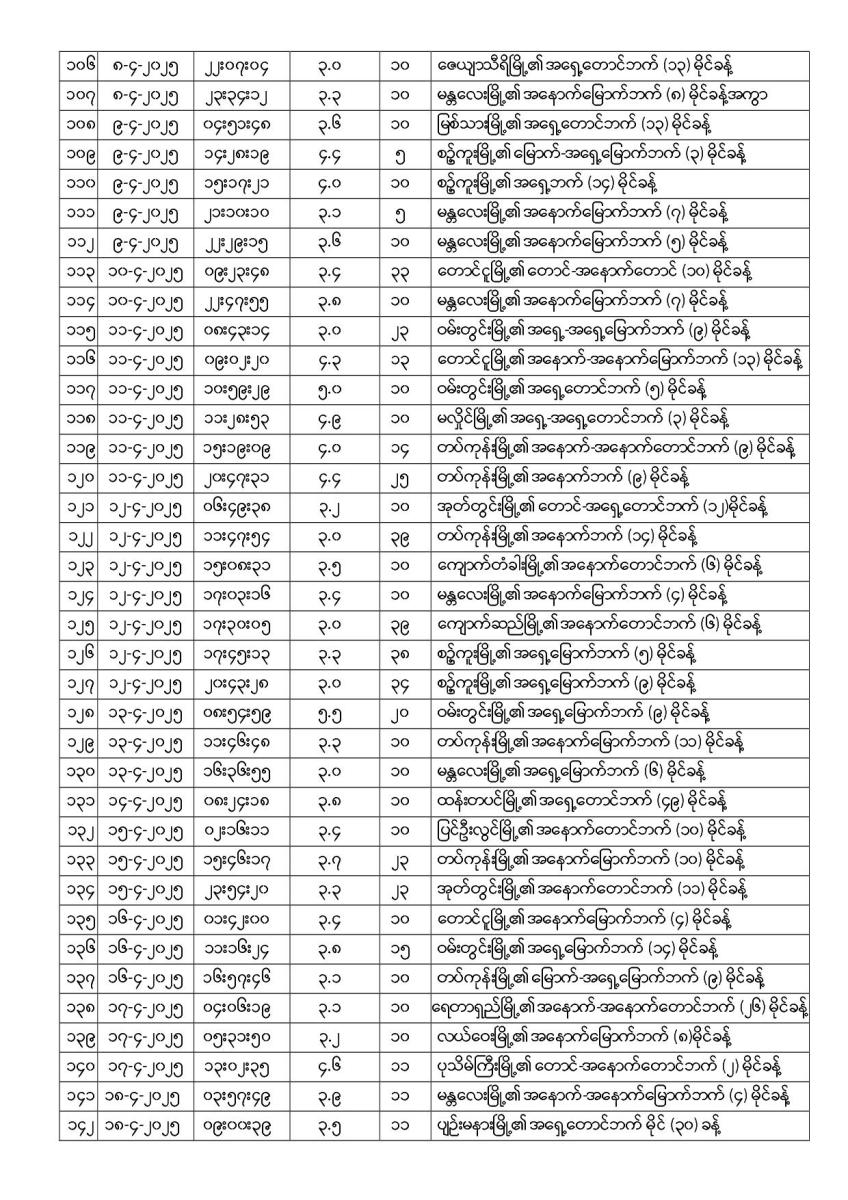 ၁၀၆ ၈-၄-၂၀၂၅ ၂၂း၀၇း၀၄ ၃.၀ ၁၀ ဇေယျာသီရိမြို့၏ အရှေ့တောင်ဘက် (၁၃) မိုင်ခန့်
၁၀၇ ၈-၄-၂၀၂၅ ၂၃း၃၄း၁၂ ၃.၃ ၁၀ မန္တလေးမြို့၏ အနောက်မြောက်ဘက် (၈) မိုင်ခန့်အကွာ
၁၀၈ ၉-၄-၂၀၂၅ ၀၄း၅၁း၄၈ ၃.၆ ၁၀ မြစ်သားမြို့၏ အရှေ့တောင်ဘက် (၁၃) မိုင်ခန့်
၁၀၉ ၉-၄-၂၀၂၅ ၁၄း၂၈း၁၉ ၄.၄ ၅ စဉ့်ကူးမြို့၏ မြောက်-အရှေ့မြောက်ဘက် (၃) မိုင်ခန့်
၁၁၀ ၉-၄-၂၀၂၅ ၁၅း၁၇း၂၁ ၄.၀ ၁၀ စဉ့်ကူးမြို့၏ အရှေ့ဘက် (၁၄) မိုင်ခန့်
၁၁၁ ၉-၄-၂၀၂၅ ၂၁း၁၀း၁၀ ၃.၁ ၅ မန္တလေးမြို့၏ အနောက်မြောက်ဘက် (၇) မိုင်ခန့်
၁၁၂ ၉-၄-၂၀၂၅ ၂၂း၂၉း၁၅ ၃.၆ ၁၀ မန္တလေးမြို့၏ အနောက်မြောက်ဘက် (၅) မိုင်ခန့်
၁၁၃ ၁၀-၄-၂၀၂၅ ၀၉း၂၃း၄၈ ၃.၄ ၃၃ တောင်ငူမြို့၏ တောင်-အနောက်တောင် (၁၀) မိုင်ခန့်
၁၁၄ ၁၀-၄-၂၀၂၅ ၂၂း၄၇း၅၅ ၃.၈ ၁၀ မန္တလေးမြို့၏ အနောက်မြောက်ဘက် (၇) မိုင်ခန့်
၁၁၅ ၁၁-၄-၂၀၂၅ ၀၈း၄၃း၁၄ ၃.၀ ၂၃ ဝမ်းတွင်းမြို့၏ အရှေ့-အရှေ့မြောက်ဘက် (၉) မိုင်ခန့်
၁၁၆ ၁၁-၄-၂၀၂၅ ၀၉း၀၂း၂၀ ၄.၃ ၁၃ တောင်ငူမြို့၏ အနောက်-အနောက်မြောက်ဘက် (၁၃) မိုင်ခန့်
၁၁၇ ၁၁-၄-၂၀၂၅ ၁၀း၅၉း၂၉ ၅.၀ ၁၀ ဝမ်းတွင်းမြို့၏ အရှေ့တောင်ဘက် (၅) မိုင်ခန့်
၁၁၈ ၁၁-၄-၂၀၂၅ ၁၁း၂၈း၅၃ ၄.၉ ၁၀ မလှိုင်မြို့၏ အရှေ့-အရှေ့တောင်ဘက် (၃) မိုင်ခန့်
၁၁၉ ၁၁-၄-၂၀၂၅ ၁၅း၁၉း၀၉ ၄.၀ ၁၄ တပ်ကုန်းမြို့၏ အနောက်-အနောက်တောင်ဘက် (၉) မိုင်ခန့်
၁၂၀ ၁၁-၄-၂၀၂၅ ၂၀း၄၇း၃၁ ၄.၄ ၂၅ တပ်ကုန်းမြို့၏ အနောက်ဘက် (၉) မိုင်ခန့်
၁၂၁ ၁၂-၄-၂၀၂၅ ၀၆း၄၉း၃၈ ၃.၂ ၁၀ အုတ်တွင်းမြို့၏ တောင်-အရှေ့တောင်ဘက် (၁၂)မိုင်ခန့်
၁၂၂ ၁၂-၄-၂၀၂၅ ၁၁း၄၇း၅၄ ၃.၀ ၃၉ တပ်ကုန်းမြို့၏ အနောက်ဘက် (၁၄) မိုင်ခန့်
၁၂၃ ၁၂-၄-၂၀၂၅ ၁၅း၀၈း၃၁ ၃.၅ ၁၀ ကျောက်တံခါးမြို့၏ အနောက်တောင်ဘက် (၆) မိုင်ခန့်
၁၂၄ ၁၂-၄-၂၀၂၅ ၁၇း၀၃း၁၆ ၃.၄ ၁၀ မန္တလေးမြို့၏ အနောက်မြောက်ဘက် (၄) မိုင်ခန့်
၁၂၅ ၁၂-၄-၂၀၂၅ ၁၇း၃၀း၀၅ ၃.၀ ၃၉ ကျောက်ဆည်မြို့၏ အနောက်တောင်ဘက် (၆) မိုင်ခန့်
၁၂၆ ၁၂-၄-၂၀၂၅ ၁၇း၄၅း၁၃ ၃.၃ ၃၈ စဉ့်ကူးမြို့၏ အရှေ့မြောက်ဘက် (၅) မိုင်ခန့်
၁၂၇ ၁၂-၄-၂၀၂၅ ၂၀း၄၃း၂၈ ၃.၀ ၃၄ စဉ့်ကူးမြို့၏ အရှေ့မြောက်ဘက် (၉) မိုင်ခန့်
၁၂၈ ၁၃-၄-၂၀၂၅ ၀၈း၅၄း၅၉ ၅.၅ ၂၀ ဝမ်းတွင်းမြို့၏ အရှေ့မြောက်ဘက် (၉) မိုင်ခန့်
၁၂၉ ၁၃-၄-၂၀၂၅ ၁၁း၄၆း၄၈ ၃.၃ ၁၀ တပ်ကုန်းမြို့၏ အနောက်မြောက်ဘက် (၁၁) မိုင်ခန့်
၁၃၀ ၁၃-၄-၂၀၂၅ ၁၆း၃၆း၅၅ ၃.၀ ၁၀ မန္တလေးမြို့၏ အရှေ့မြောက်ဘက် (၆) မိုင်ခန့်
၁၃၁ ၁၄-၄-၂၀၂၅ ၀၈း၂၄း၁၈ ၃.၈ ၁၀ ထန်းတပင်မြို့၏ အရှေ့တောင်ဘက် (၄၉) မိုင်ခန့်
၁၃၂ ၁၅-၄-၂၀၂၅ ၀၂း၁၆း၁၁ ၃.၄ ၁၀ ပြင်ဦးလွင်မြို့၏ အနောက်တောင်ဘက် (၁၀) မိုင်ခန့်
၁၃၃ ၁၅-၄-၂၀၂၅ ၁၅း၄၆း၁၇ ၃.၇ ၂၃ တပ်ကုန်းမြို့၏ အနောက်မြောက်ဘက် (၁၀) မိုင်ခန့်
၁၃၄ ၁၅-၄-၂၀၂၅ ၂၃း၅၄း၂၀ ၃.၃ ၂၃ အုတ်တွင်းမြို့၏ အနောက်တောင်ဘက် (၁၁) မိုင်ခန့်
၁၃၅ ၁၆-၄-၂၀၂၅ ၀၁း၄၂း၀၀ ၃.၄ ၁၀ တောင်ငူမြို့၏ အနောက်မြောက်ဘက် (၄) မိုင်ခန့်
၁၃၆ ၁၆-၄-၂၀၂၅ ၁၁း၁၆း၂၄ ၃.၈ ၁၅ ဝမ်းတွင်းမြို့၏ အရှေ့မြောက်ဘက် (၁၄) မိုင်ခန့်
၁၃၇ ၁၆-၄-၂၀၂၅ ၁၆း၅၇း၄၆ ၃.၁ ၁၀ တပ်ကုန်းမြို့၏ မြောက်-အရှေ့မြောက်ဘက် (၉) မိုင်ခန့်
၁၃၈ ၁၇-၄-၂၀၂၅ ၀၄း၀၆း၁၉ ၃.၁ ၁၀ ရေတာရှည်မြို့၏ အနောက်-အနောက်တောင်ဘက် (၂၆) မိုင်ခန့်
၁၃၉ ၁၇-၄-၂၀၂၅ ၀၅း၃၁း၅၀ ၃.၂ ၁၀ လယ်ဝေးမြို့၏ အနောက်မြောက်ဘက် (၈)မိုင်ခန့်
၁၄၀ ၁၇-၄-၂၀၂၅ ၁၃း၀၂း၃၅ ၄.၆ ၁၁ ပုသိမ်ကြီးမြို့၏ တောင်-အနောက်တောင်ဘက် (၂) မိုင်ခန့်
၁၄၁ ၁၈-၄-၂၀၂၅ ၀၃း၅၇း၄၉ ၃.၉ ၁၁ မန္တလေးမြို့၏ အနောက်-အနောက်မြောက်ဘက် (၄) မိုင်ခန့်
၁၄၂ ၁၈-၄-၂၀၂၅ ၀၉း၀၀း၃၉ ၃.၅ ၁၁ ပျဉ်းမနားမြို့၏ အရှေ့တောင်ဘက် မိုင် (၃၀) ခန့်